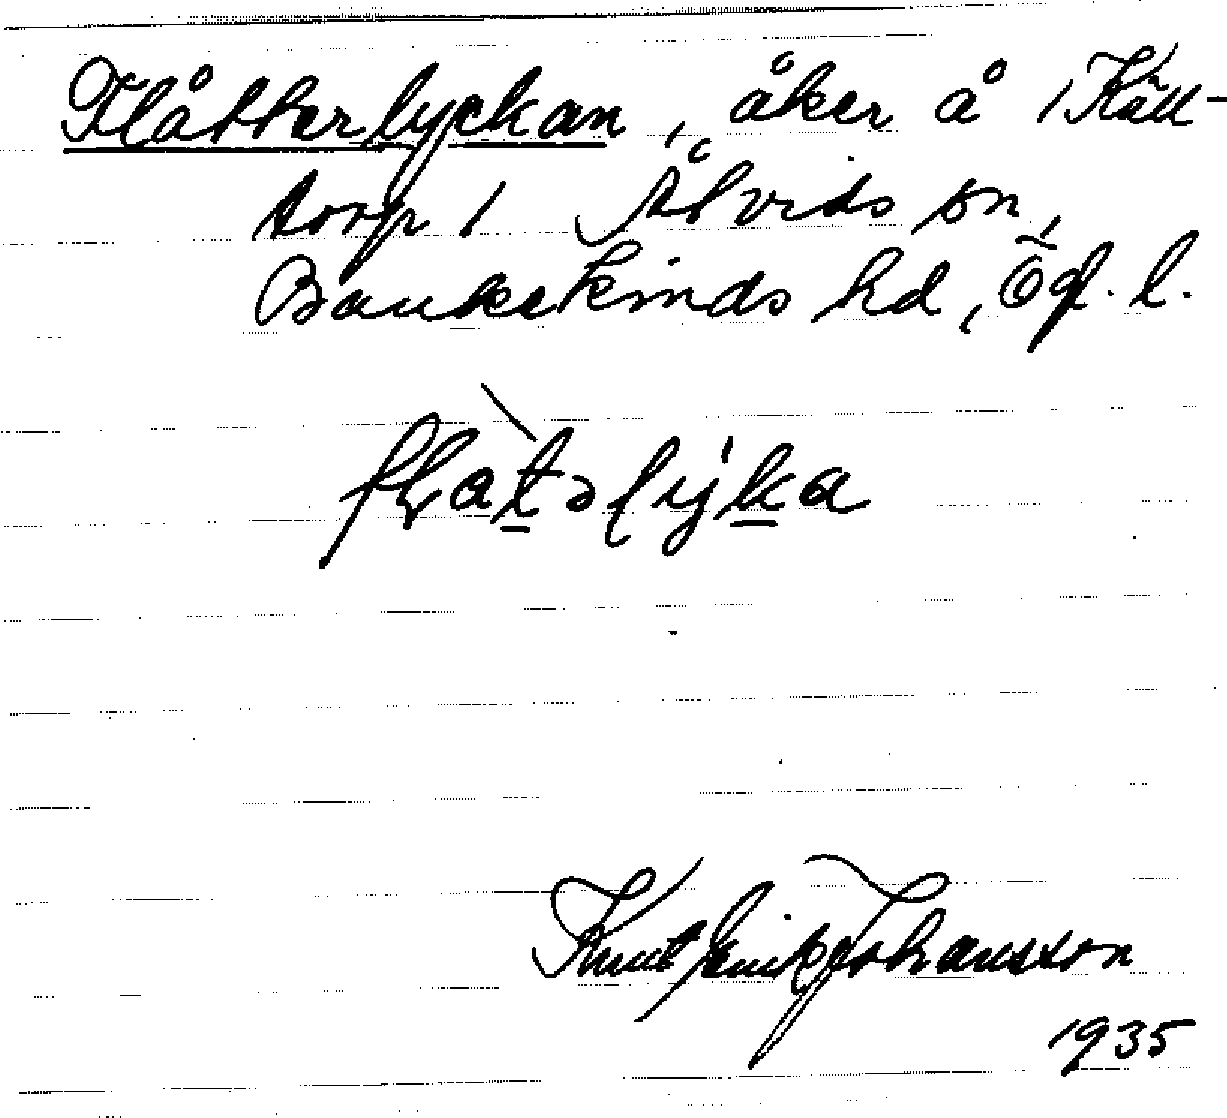 Flåtterlyckan, åker å 1 Käll-
torp 1 Åtvids sn,
Bankekinds hd, Ög. l.
flàtəlýka
Knut Erik Johansson
1935